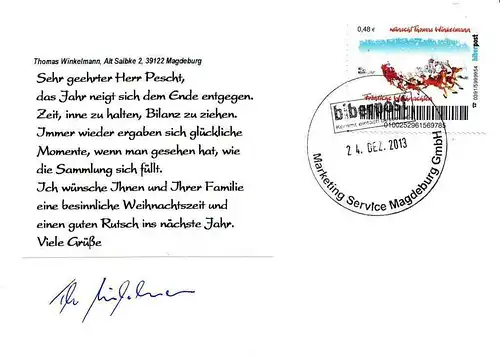 Thomas Winkelmann, Alt Salbke 2, 39122 Magdeburg
Sehr geehrter Herr Pescht,
das Jahr neigt sich dem Ende entgegen.
Zeit, inne zu halten, Bilanz zu ziehen.
Immer wieder ergaben sich glückliche
Momente, wenn man gesehen hat, wie
die Sammlung sich füllt.
Ich wünsche Ihnen und Ihrer Familie
eine besinnliche Weihnachtszeit und
einen guten Rutsch ins nächste Jahr.
Viele Grüße
0,48 €
wünscht Thomas Winkelmann
biberpost
Fröhliche Weihnachten
biberpost
Kommt einfach
24. DEZ. 2013
Marketing Service Magdeburg GmbH